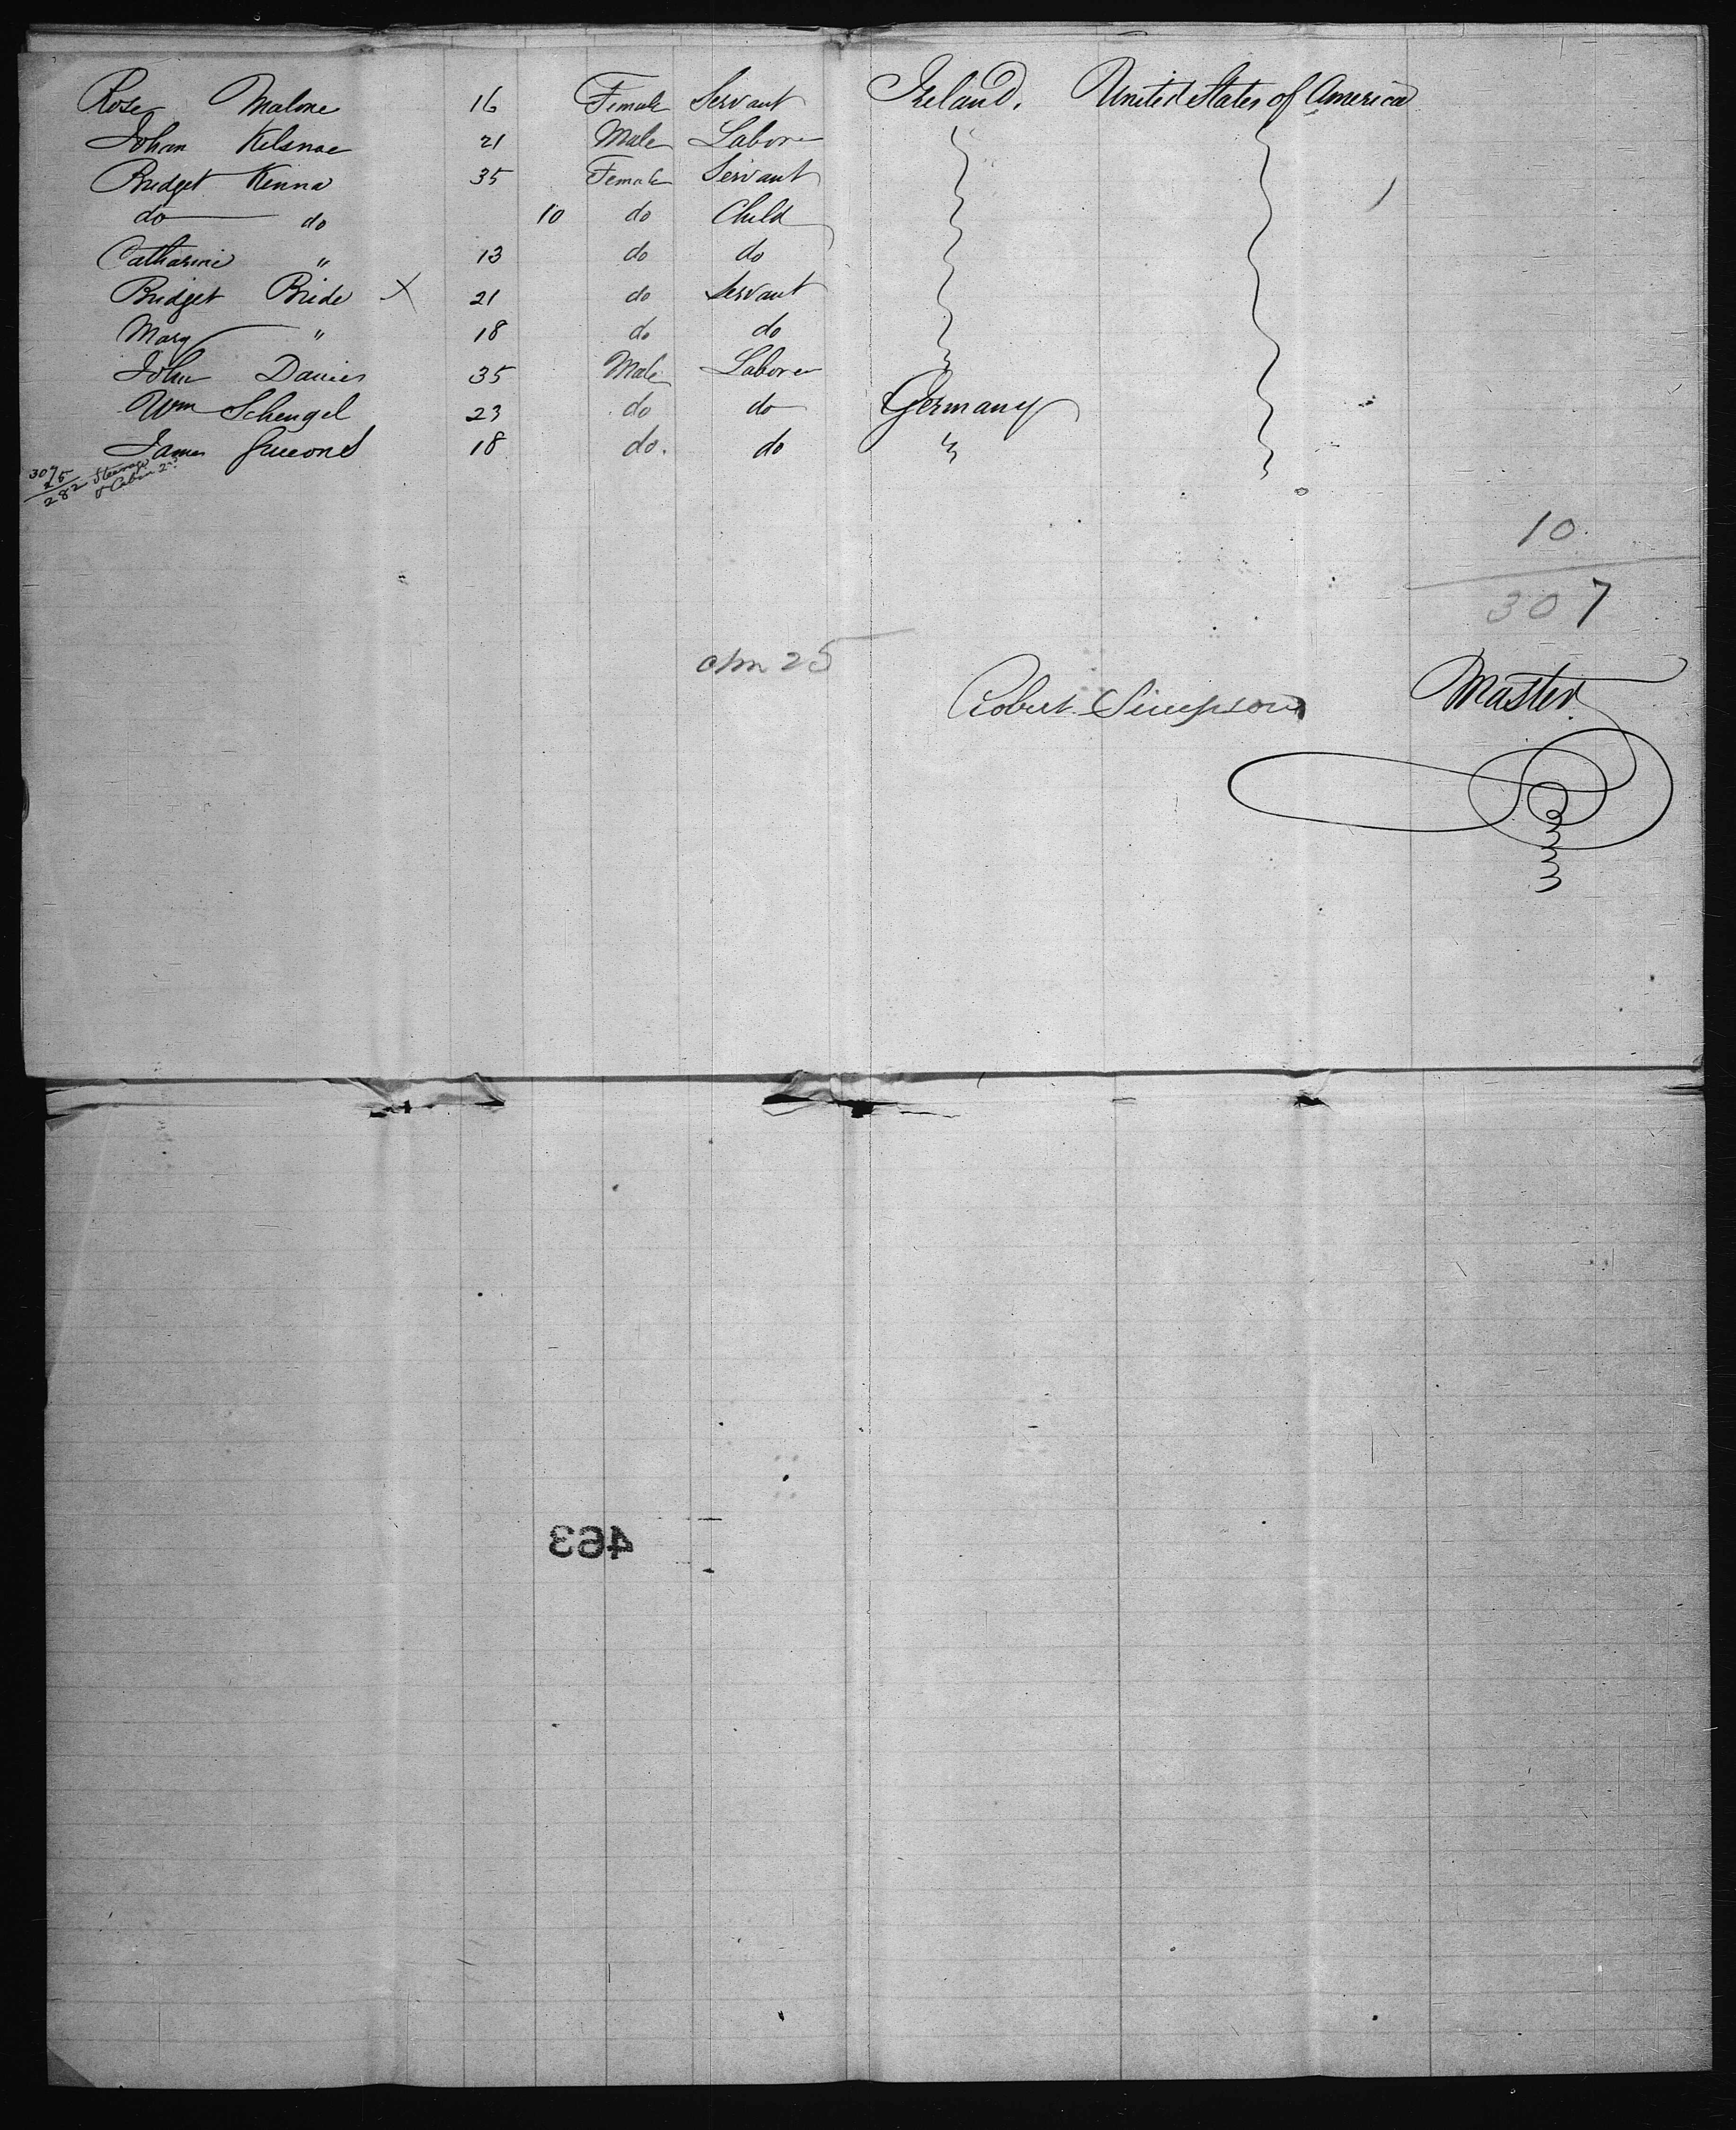 Rose Malone 16 Female Servant Ireland. United States of America
Johan Kelsnae 21 Male Labore
Bridget Kenna 35 Female Servant
do do 10 do Child
Catharine " 13 do do
Bridget Bride X 21 do Servant
Mary " 18 do do
John Davies 35 Male Labore
Wm Schengel 23 do do Germany
James 18 do. do "
307
25
282 Steerage
& Cabin 2nd
10.
307
25
Robert Simpson Master
463